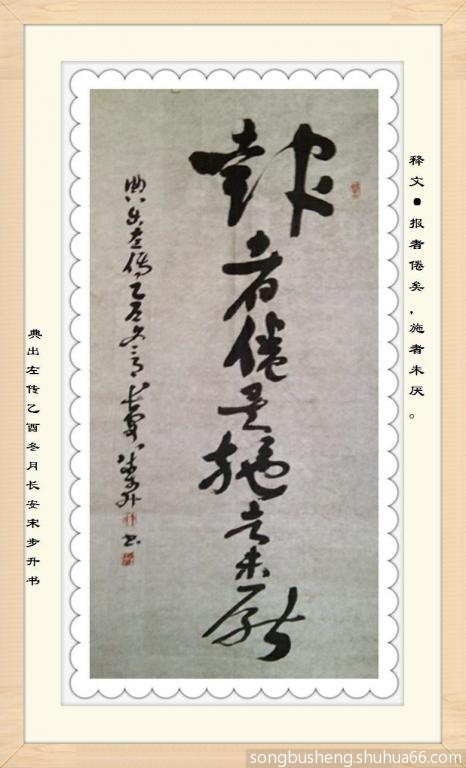 释文●报者倦矣，施者未厌。
報者倦矣施者未厭
典出左傳乙酉冬月長安宋步升書
典出左传乙酉冬月长安宋步升书
songbusheng.shuhua66.com